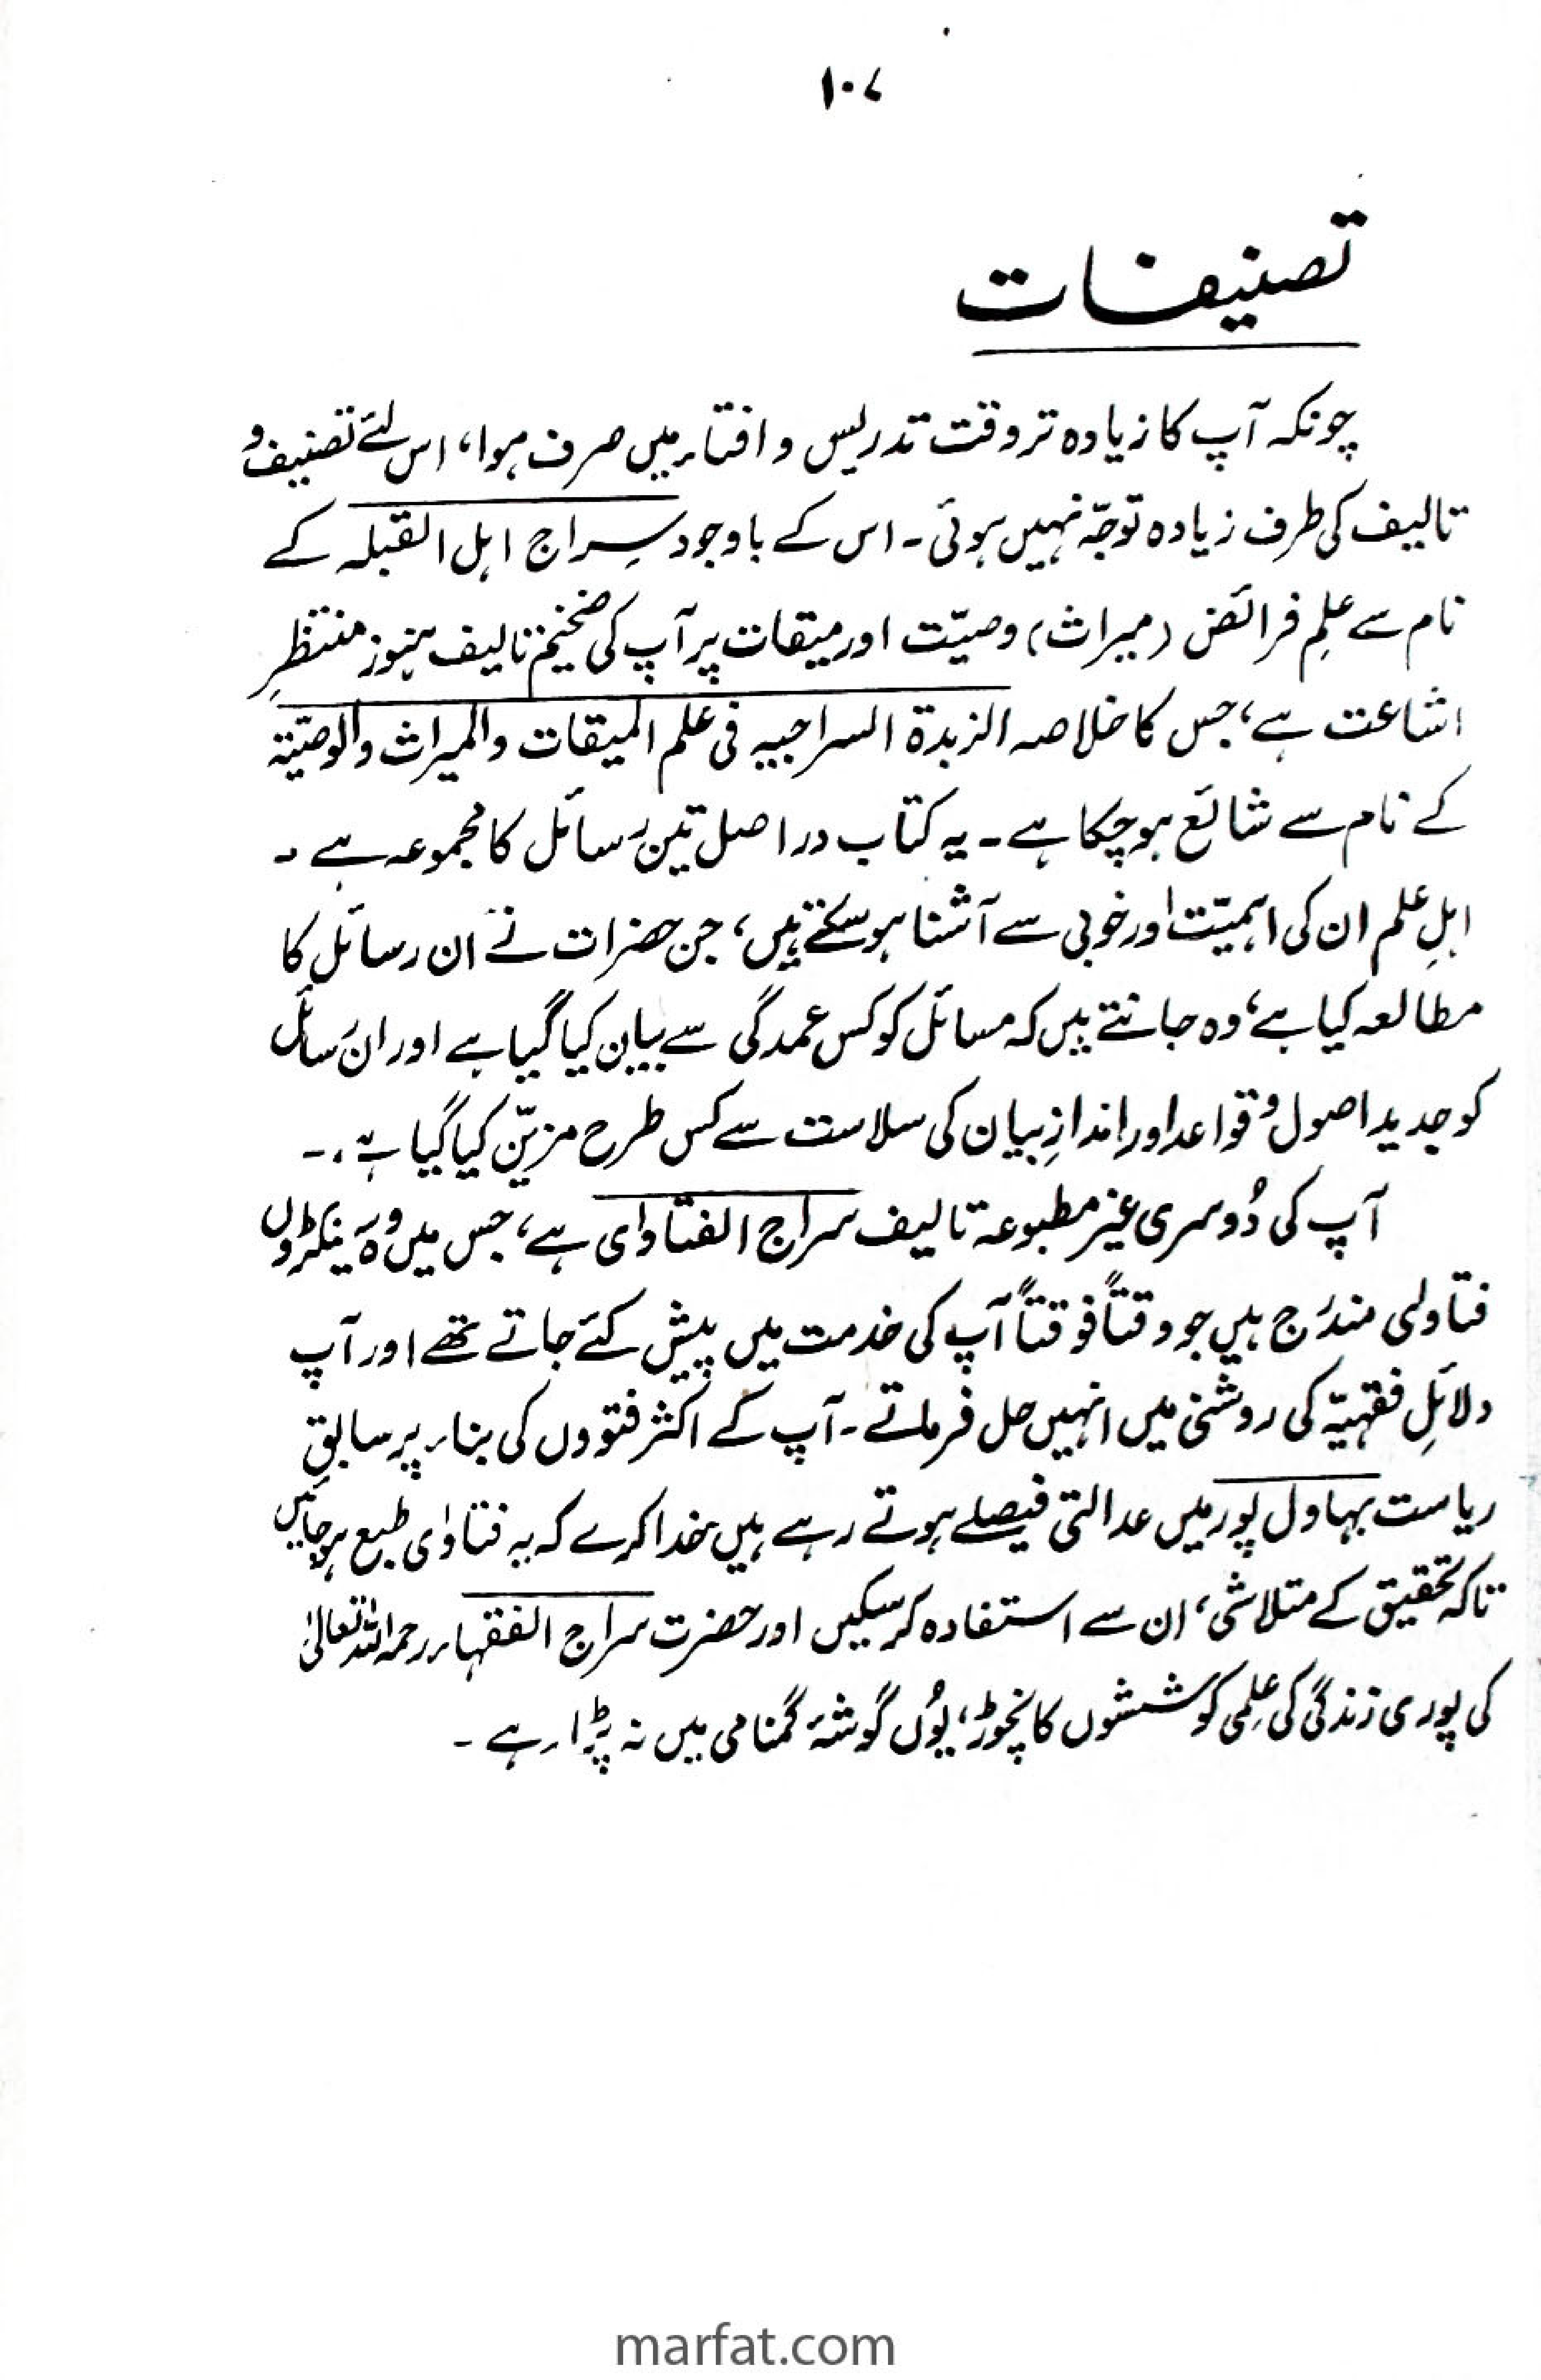 ۱۰۷
تصنیفات
چونکہ آپ کا زیادہ تر وقت تدریس و افتاء میں صرف ہوا، اس لئے تصنیف و
تالیف کی طرف زیادہ توجّہ نہیں ہوئی۔ اس کے باوجود سِراج اہل القبلہ کے
نام سے علمِ فرائض (میراث) وصیّت اور میقات پر آپ کی ضخیم تالیف ہنوز منتظرِ
اشاعت ہے، جس کا خلاصہ الزبدۃ السراجیہ فی علم المیقات والمیراث والوصیّۃ
کے نام سے شائع ہو چکا ہے۔ یہ کتاب در اصل تین رسائل کا مجموعہ ہے۔
اہلِ علم ان کی اہمیّت اور خوبی سے آشنا ہو سکتے ہیں، جن حضرات نے ان رسائل کا
مطالعہ کیا ہے، وہ جانتے ہیں کہ مسائل کو کس عمدگی سے بیان کیا گیا ہے اور ان رسائل
کو جدید اصول و قواعد اور اندازِ بیان کی سلاست سے کس طرح مزیّن کیا گیا ہے۔
آپ کی دُوسری غیر مطبوعہ تالیف سراج الفتاوٰی ہے، جس میں وہ سینکڑوں
فتاوٰی مندرج ہیں جو وقتاً فوقتاً آپ کی خدمت میں پیش کئے جاتے تھے اور آپ
دلائلِ فقہیّہ کی روشنی میں انہیں حل فرماتے۔ آپ کے اکثر فتووں کی بناء پر سابق
ریاست بہاول پور میں عدالتی فیصلے ہوتے رہے ہیں خدا کرے کہ یہ فتاوٰی طبع ہو جائیں
تاکہ تحقیق کے متلاشی، ان سے استفادہ کر سکیں اور حضرت سراج الفقہاء رحمہ اللہ تعالیٰ
کی پوری زندگی کی علِمی کوششوں کا نچوڑ، یُوں گوشۂ گمنامی میں نہ پڑا رہے۔
marfat.com